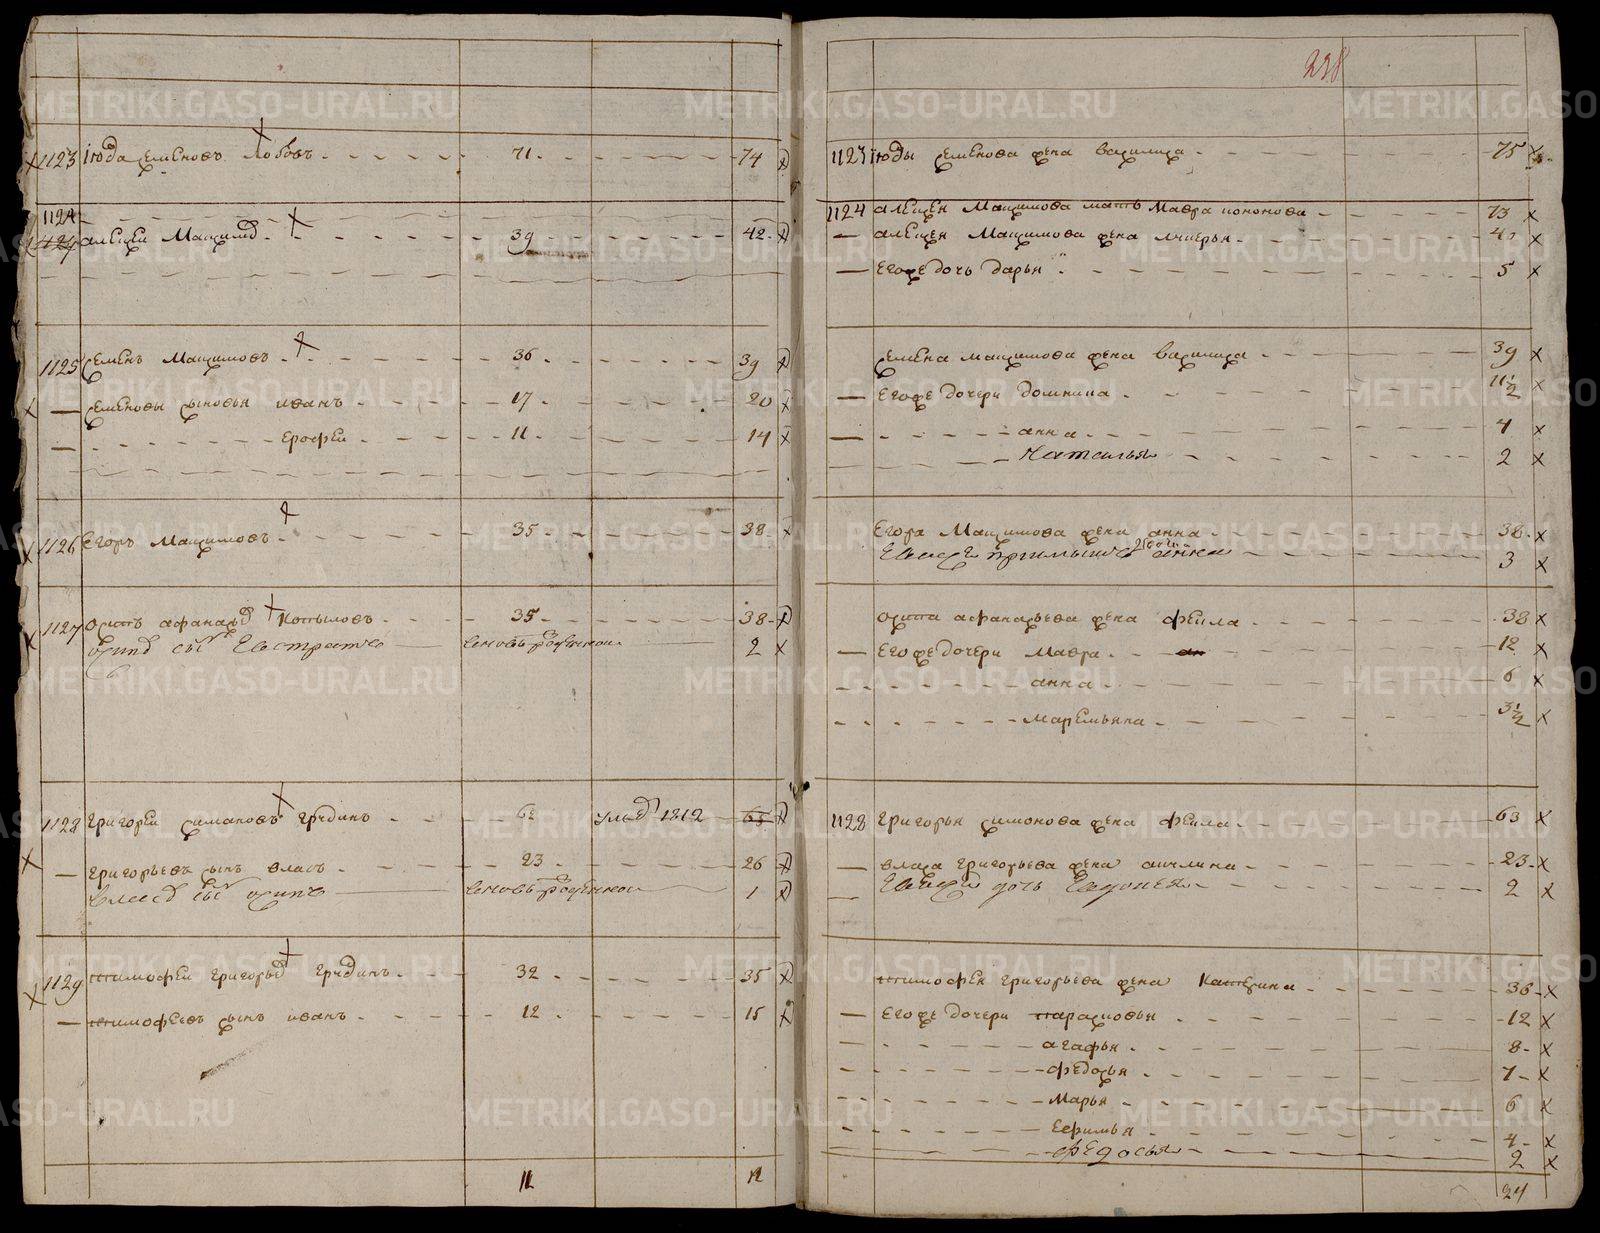 238
1123 Июда Семеновъ Лобовъ 71 74
1124
1124 Алексеи Максимовъ 39 42
1125 Семенъ Максимовъ 36 39
Семеновы сыновья Иванъ 17 20
Ерофеи 11 14
1126 Егоръ Максимовъ 35 38
1127 Осипъ Афанасьевъ Копыловъ 35 38
Осиповъ сынъ Евстратъ вновь рожденной 2
1128 Григореи Симановъ Грудинъ 62 умре 1812 65
Григорьевъ сынъ Власъ 23 26
Власовъ сынъ Осипъ вновь рожденной 1
1129 Тимофеи Григорьевъ Грудинъ 32 35
Тимофеевъ сынъ Иванъ 12 15
11 12
1123 Июды Семенова жена Василиса 75
1124 Алексея Максимова мать Мавра Кононова 73
Алексея Максимова жена 40
Егоже дочь Дарья 5
Семена Максимова жена Василиса 39
Егоже дочери Домнина 11½
Анна 4
Наталья 2
Егора Максимова жена Анна 38
дочь Анна 3
Осипа Афанасьева жена Фекла 38
Егоже дочери Мавра 12
Анна 6
Маремьяна 3½
1128 Григорья Симонова жена Фекла 63
Власа Григорьева жена Акилина 23
дочь Евдокея 2
Тимофея Григорьева жена Катерина 36
Егоже дочери Парасковья 12
Агафья 8
Федосья 7
Марья 6
Еефимья 4
Федосья 2
24
METRIKI.GASO-URAL.RU